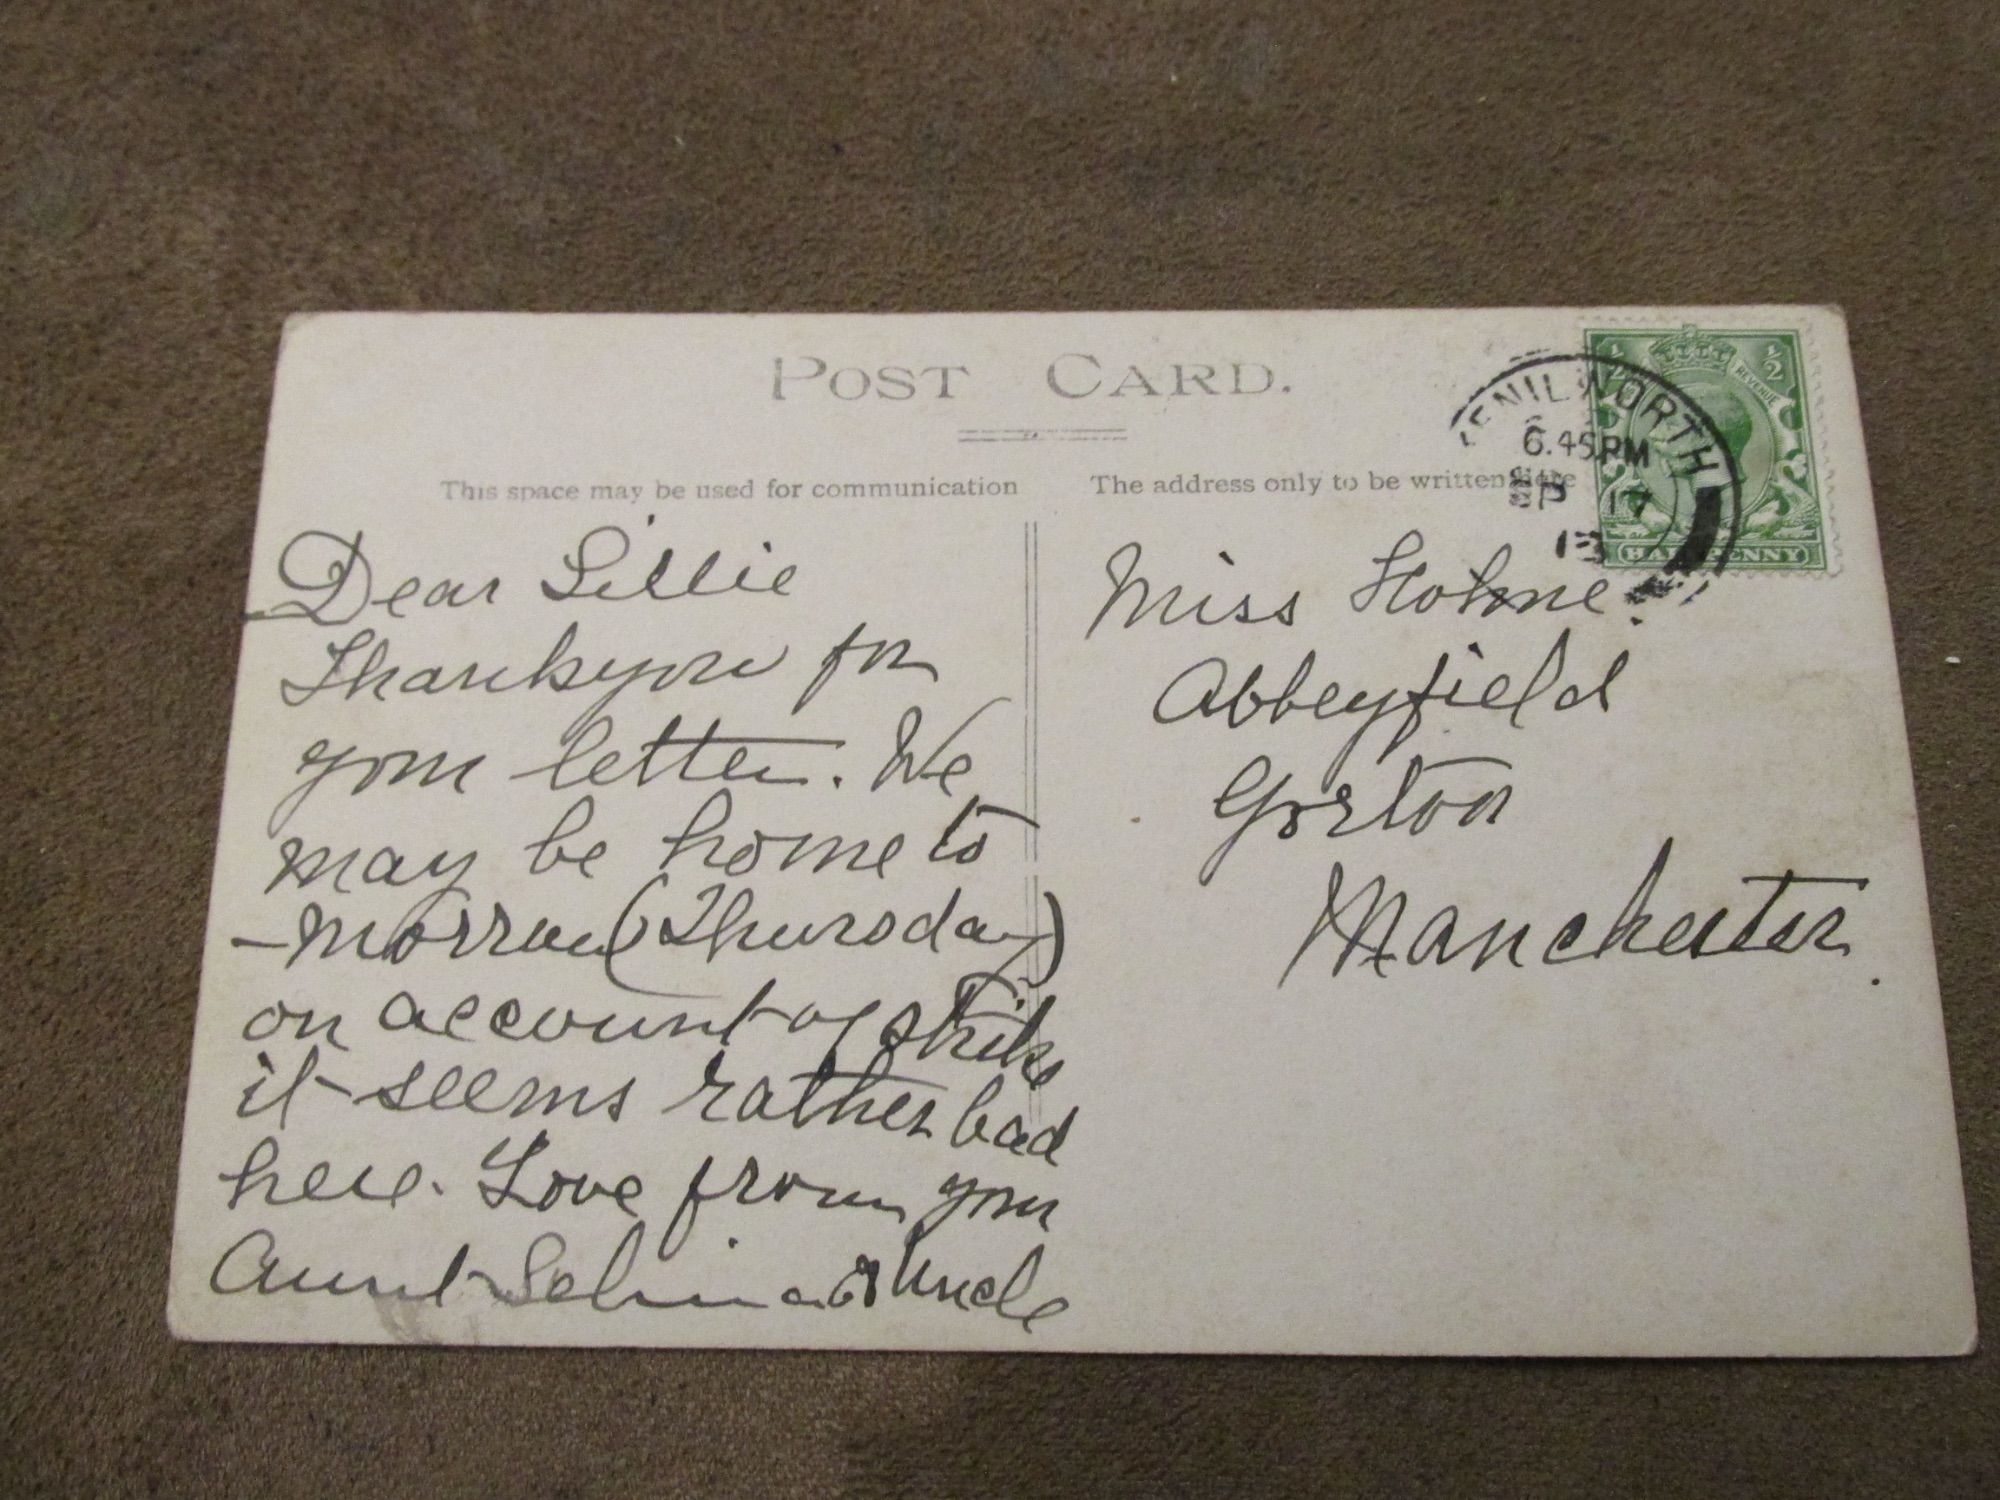 POST CARD.
This space may be used for communication
The address only to be written here
Dear Lillie
Thankyou for
your letter. We
may be home to
-morrow (Thursday)
on account of strike
it seems rather bad
here. Love from your
Aunt Selina & Uncle
Miss Holme
Abbeyfield
Gorton
Manchester.
KENILWORTH
6.45PM
SP 17
13
½ ½
REVENUE
HALFPENNY